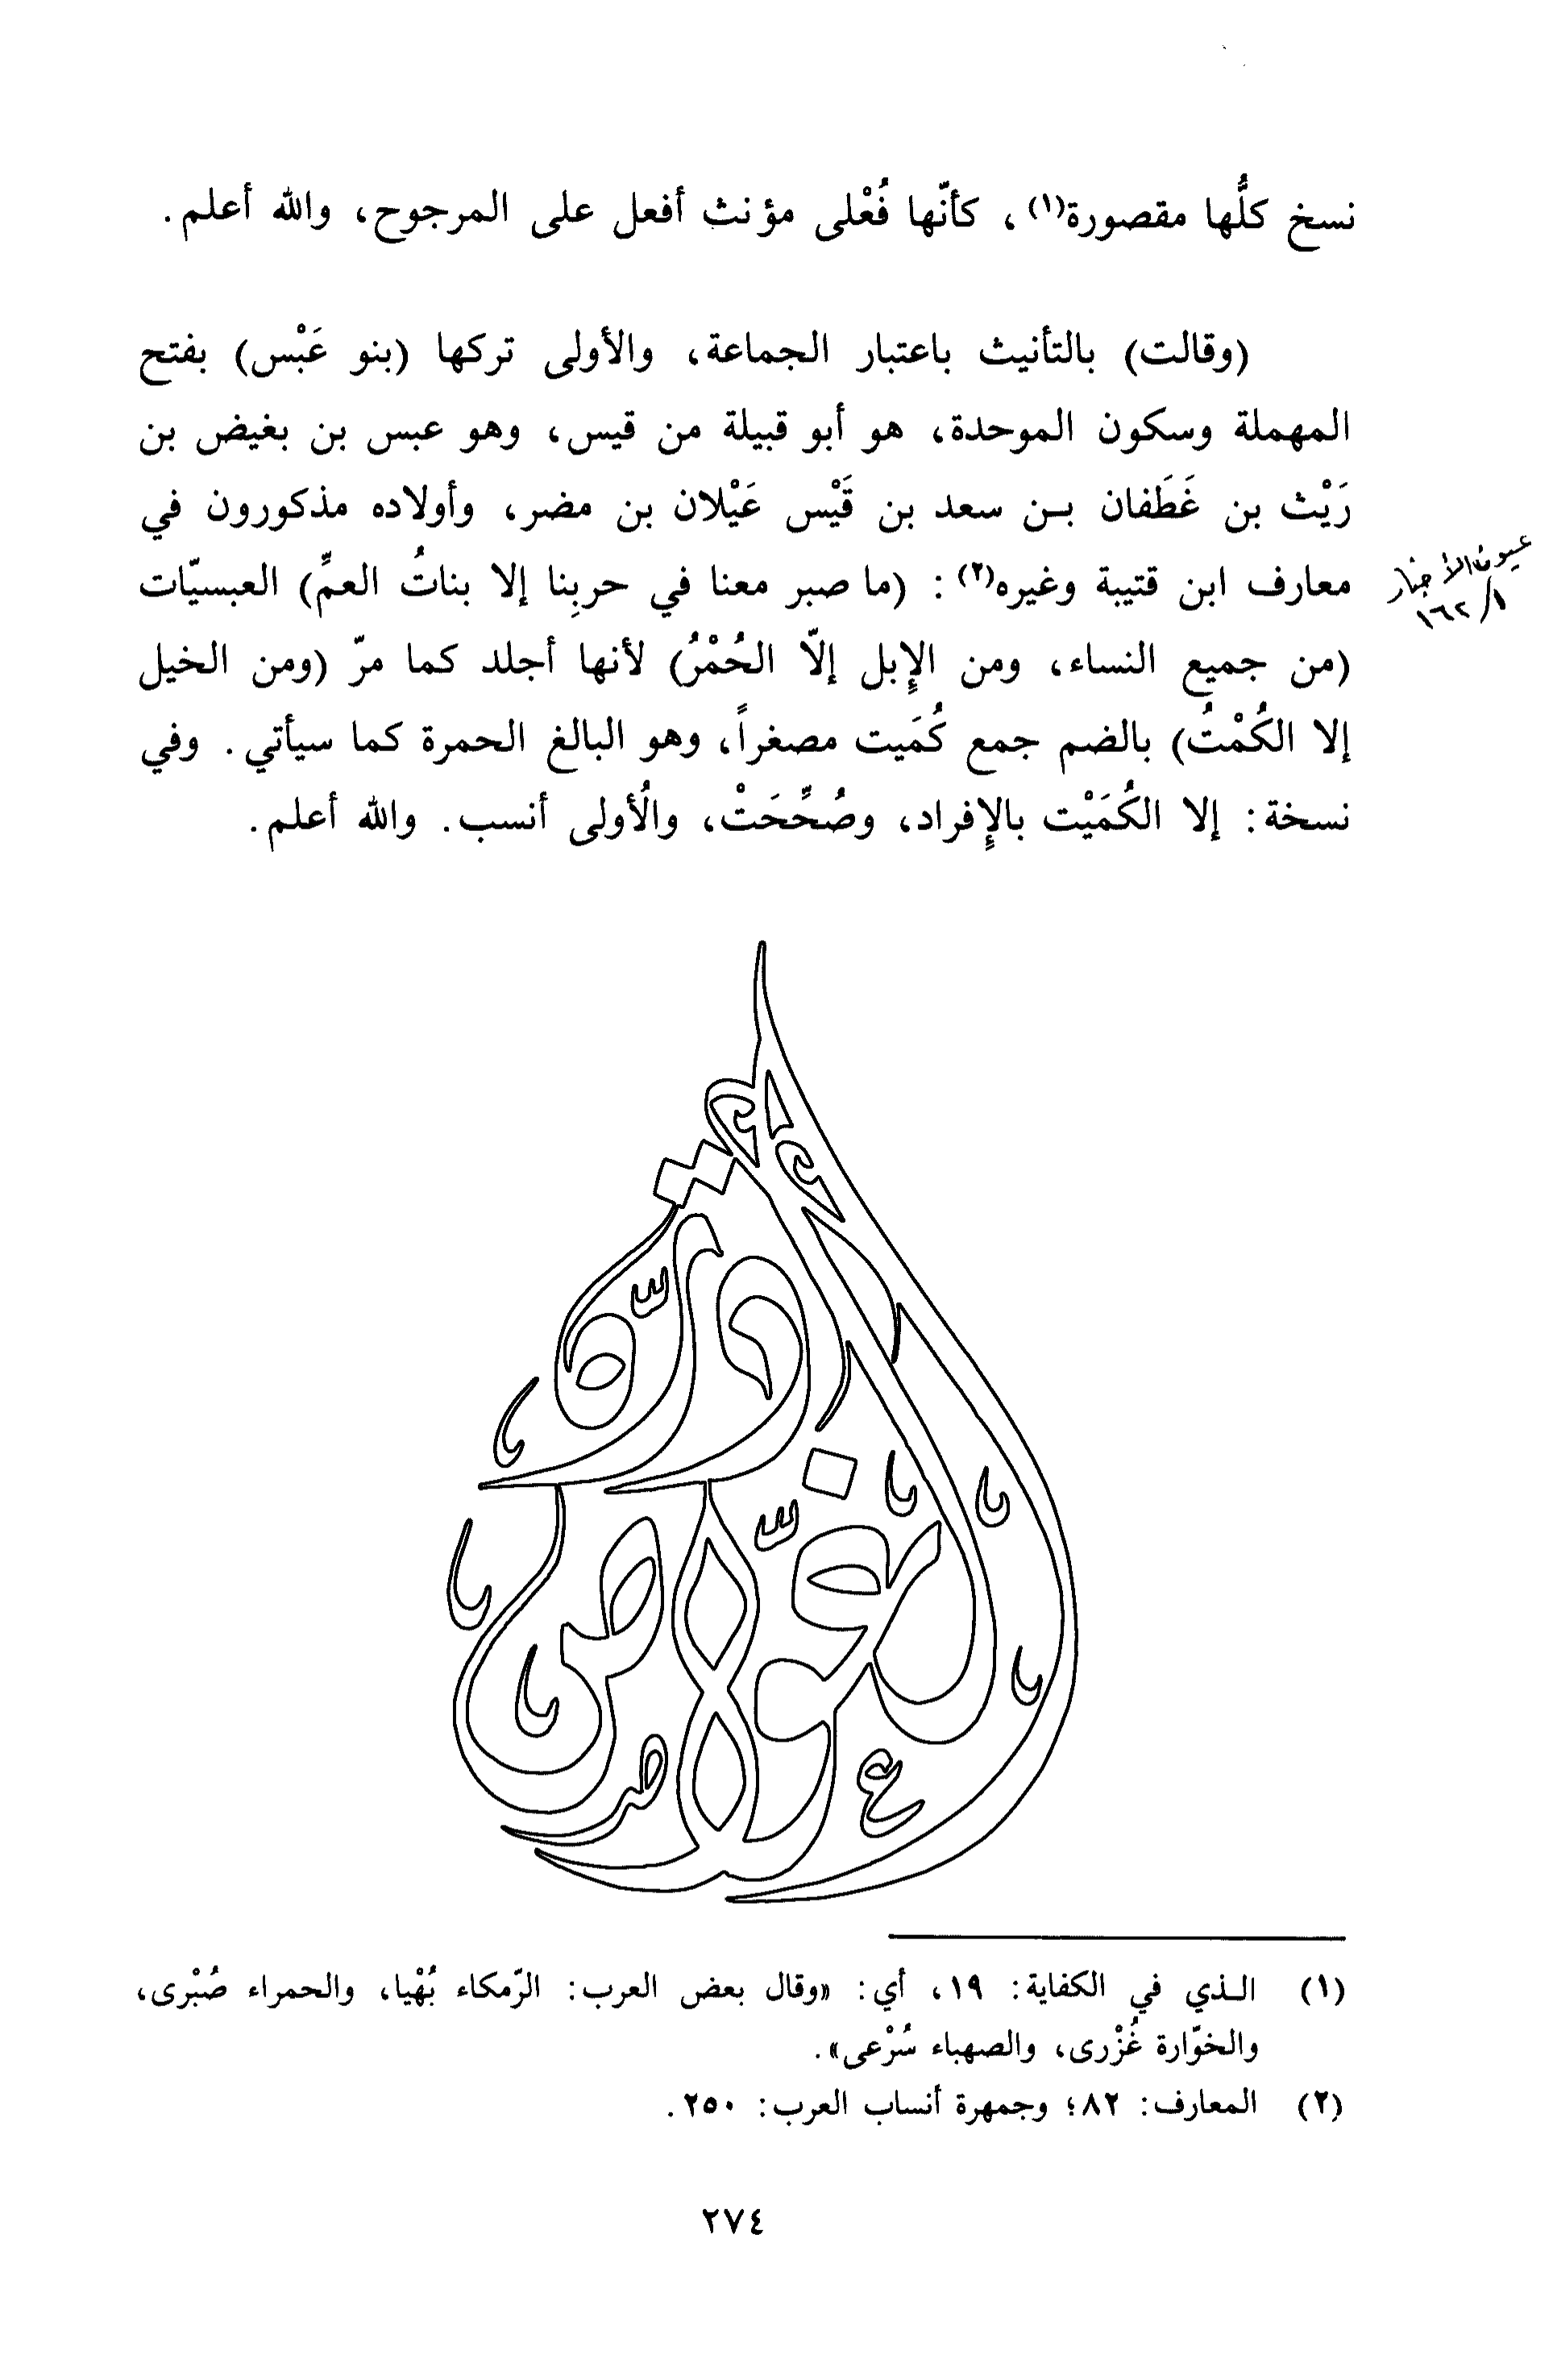 نسخ كلُّها مقصورة(١)، كأنّها فُعْلى مؤنث أفعل على المرجوح، والله أعلم.
(وقالت) بالتأنيث باعتبار الجماعة، والأولى تركها (بنو عَبْس) بفتح
المهملة وسكون الموحدة، هو أبو قبيلة من قيس، وهو عبس بن بغيض بن
رَيْث بن غَطَفان بـن سعد بن قَيْس عَيْلان بن مضر، وأولاده مذكورون في
معارف ابن قتيبة وغيره(٢): (ما صبر معنا في حربِنا إلا بناتُ العمِّ) العبسيّات
عيون الأخبار
١/١٦٢
(من جميع النساء، ومن الإِبل إلّا الحُمْرُ) لأنها أجلد كما مرّ (ومن الخيل
إلا الكُمْتُ) بالضم جمع كُمَيت مصغراً، وهو البالغ الحمرة كما سيأتي. وفي
نسخة: إلا الكُمَيْت بالإِفراد، وصُحِّحَتْ، والُأولى أنسب. والله أعلم.
درّة
الغوّاص
(١) الـذي في الكفاية: ١٩، أي: «وقال بعض العرب: الرّمكاء بُهْيا، والحمراء صُبْرى،
والخوّارة غُزْرى، والصهباء سُرْعى».
(٢) المعارف: ٨٢؛ وجمهرة أنساب العرب: ٢٥٠.
٢٧٤